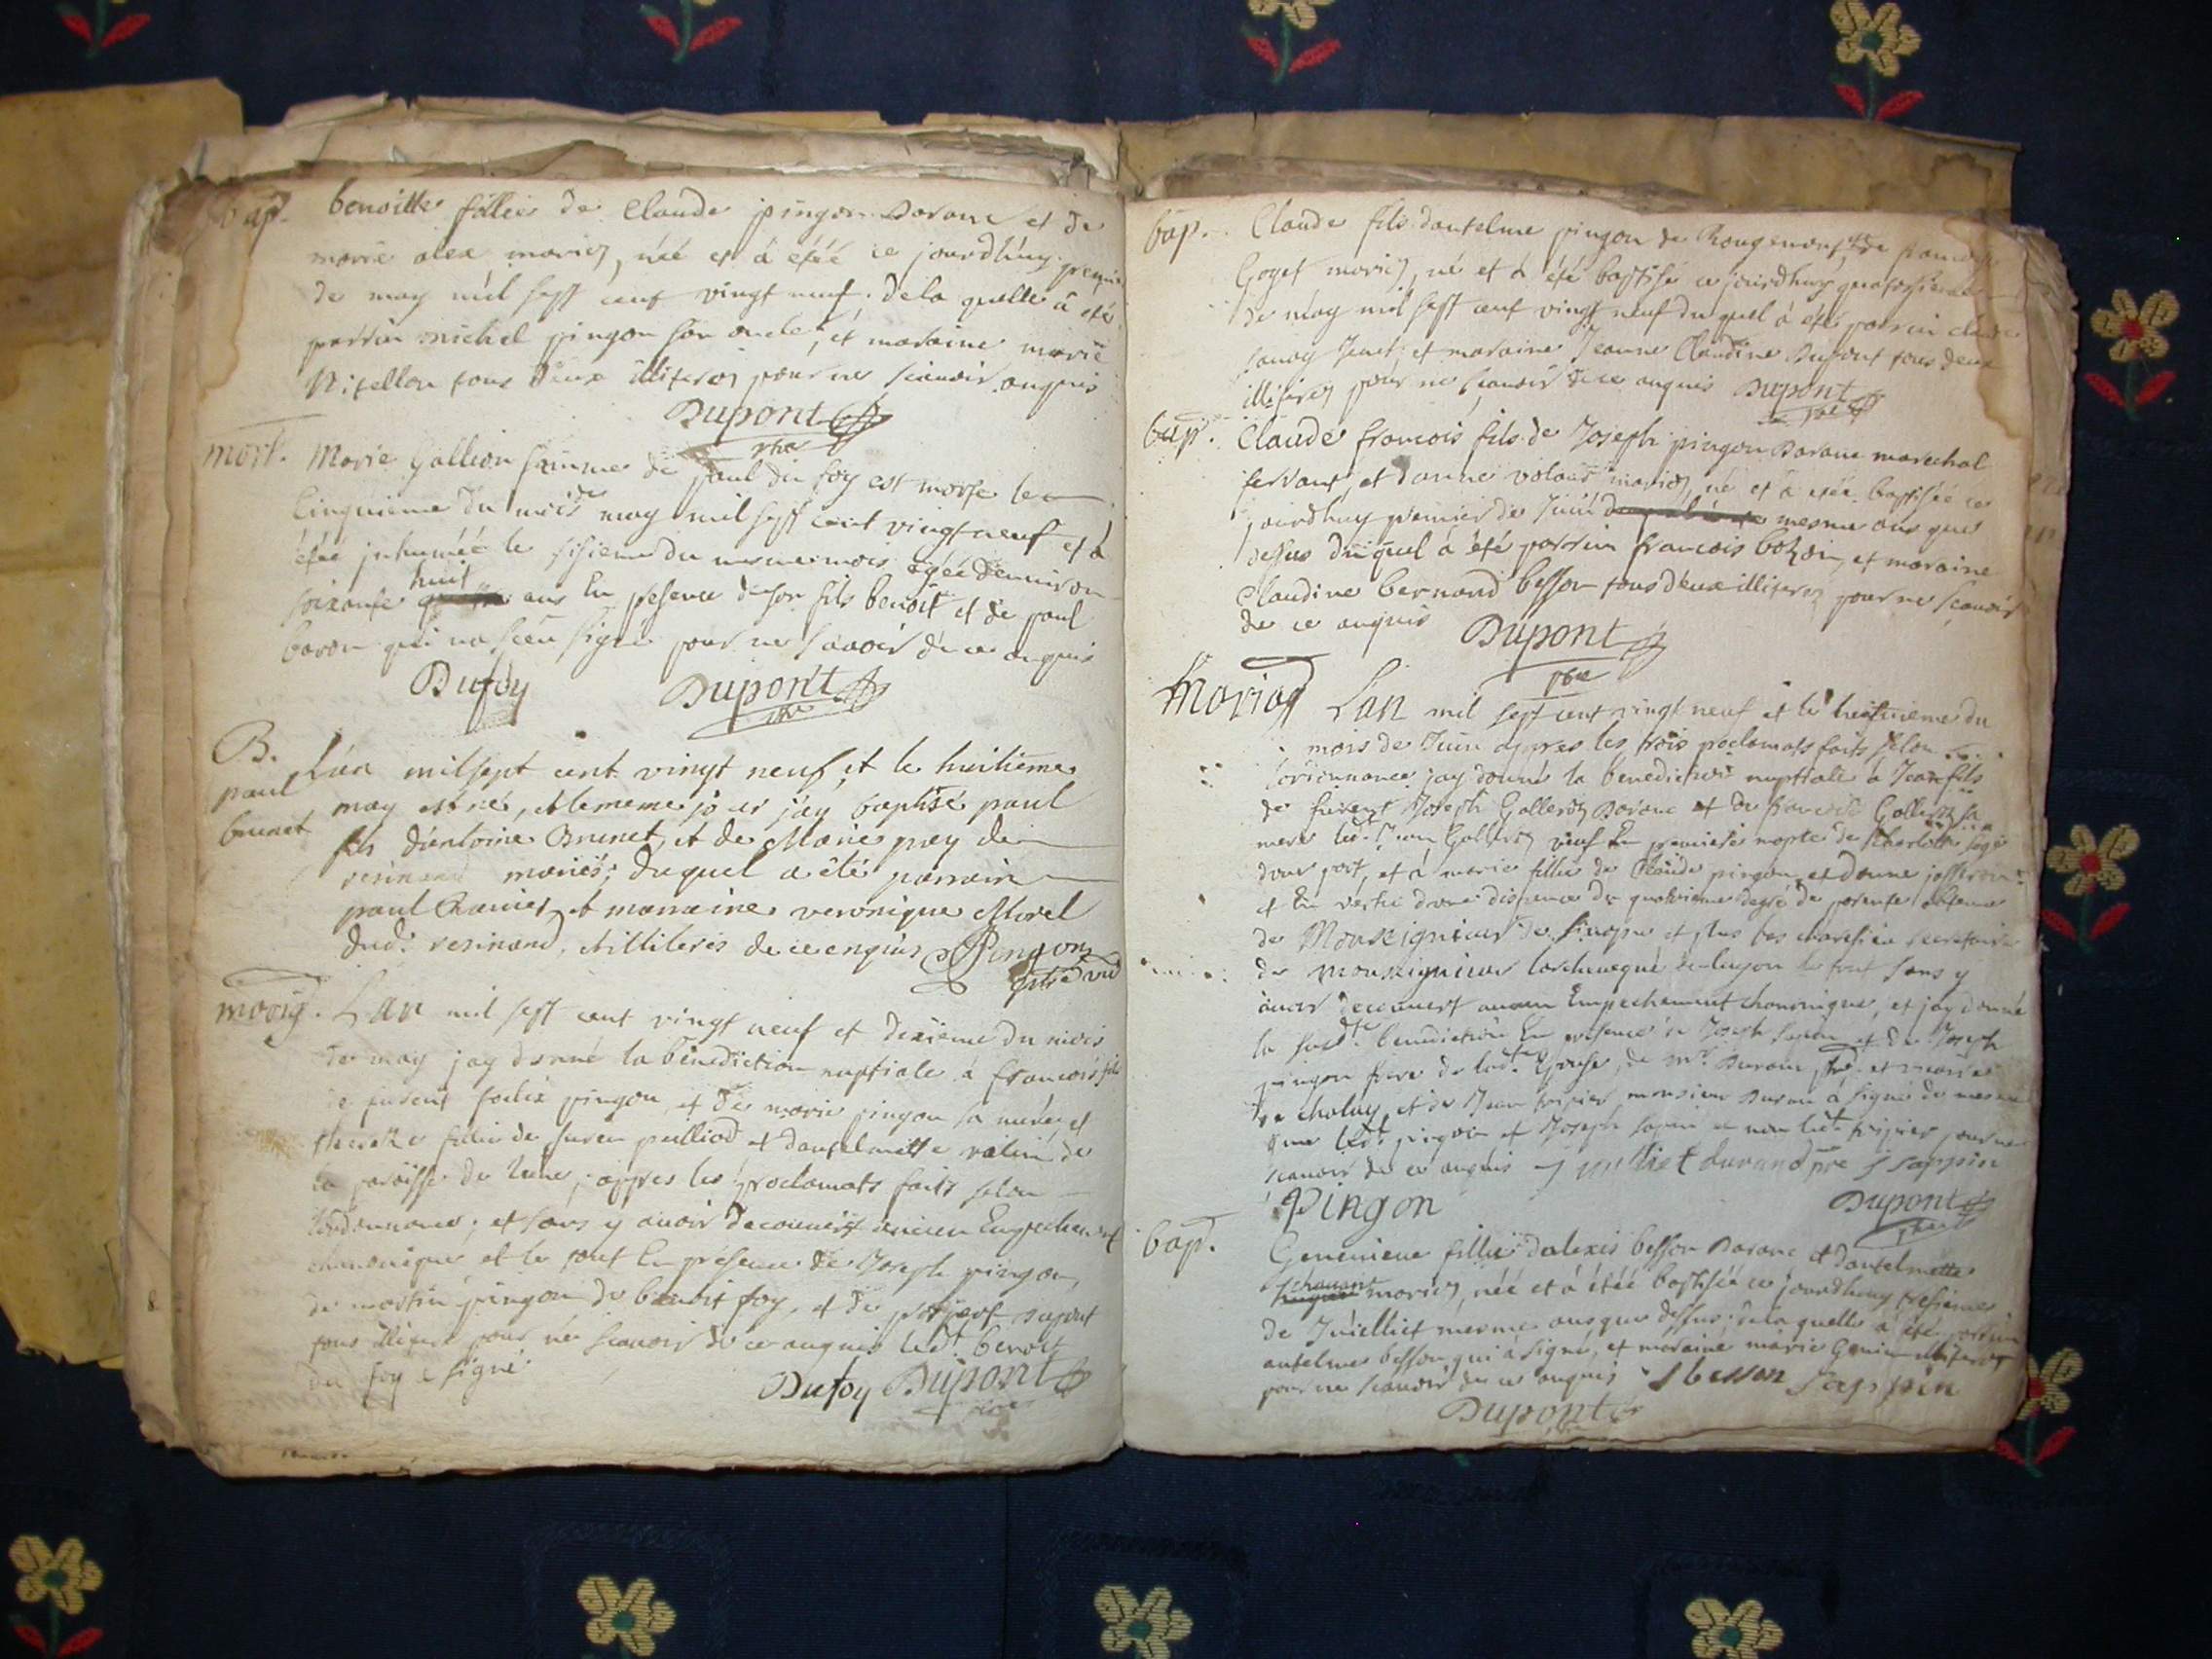 bap. benoitte fillie de Claude pingon Darane et de
marie alex mariés, née et a étéé ce jourdhuy premier
de may mil sept cent vingt neuf. de la quelle a été
parrin michel pingon son oncle, et maraine marie
Nitellon tous deux illiteres pour ne scauoir enquis
Dupont ptre
mort. Marie gallion femme de paul du foy est morte le
Cinquieme du mois de may mil sept cent vingt neuf et a
étéé inhuméé le sisieme du mesme mois agéé denuiron
soixante huit ans En presence de son fils benoit et de paul
baron qui na sceu signé pour ne scauoir de ce enquis
Dufoy Dupont ptre
B. paul brunet
L'an mil sept cent vingt neuf et le huitieme
may est né, et le meme jour j'ay baptisé paul
fils d'antoine Brunet, et de Marie prey de
resinand mariés; duquel a été parrain
paul Ravier et marraine veronique Morel
dud: resinand, illiterés de ce enquis Pingon
mariag. Lan mil sept cent vingt neuf et dixieme du mois
de may jay donné la benediction nuptiale a francois fils
de furent felix pingon et de marie pingon sa mere et
fillie de furen pulliod et dantelmette
la paroisse de ; appres les proclamats faits selon
lordonnance; et sans y auoir decouuert aucun Empechement
chanonique et le tout En presence de Joseph pingon,
de martin pingon de benoit foy, et de dupont
tous illiteres pour ne scauoir de ce enquis led.t benoit
du foy a signé
Dufoy Dupont ptre
bap. Claude fils dantelme pingon de Rougemont et de
Goyet mariés, né et a été baptisé ce jourdhuy quatorsieme
de may mil sept cent vingt neuf du quel a été parrin claude
et maraine Jeanne Claudine Dupont tous deux
illiteres pour ne scauoir de ce enquis Dupont ptre
bap. Claude francois fils de Joseph pingon Darane marechal
ferrant, et danne mariés, né et a étéé baptiséé ce
jourdhuy premier de Juin mesme ans que
dessus du quel a été parrin francois et maraine
Claudine bernand besson tous deux illiteres pour ne scauoir
de ce enquis Dupont ptre
Mariag Lan mil sept cent vingt neuf et le huitieme du
mois de Juin appres les trois proclamats faits selon
lordonnance jay donné la benediction nuptiale a Jean fils
de furent Joseph Galleres Darane et de francoise sa
mere led.t Jean Galleres veuf En premieres nopces de
et a marie fillie de Claude pingon et danne
et En vertu dune dispence du quatrieme degré de parenté obtenue
de Monseigneur de et plus bas secretaire
de monseigneur larcheuegue de lugon le tout sans y
auoir decouuert aucun Empechement chanonique, et jay donné
la sus.te benediction En presence de Joseph sapin et de Joseph
pingon frere de lad.te Epouse, de M.r Durand ptre et
de chalay, et de Jean tripier monsieur Duran a signé de mesme
que led.t pingon et Joseph sapin et non led.t tripier pour ne
scauoir de ce enquis Julliet durand ptre J sappin
Pingon Dupont ptre
bap. Geneuieue fillie dalexis besson Darane et dantelmette
chauant mariés, néé et a étéé baptiséé ce jourdhuy tresieme
de Juielliet mesme ans que dessus; de la quelle a été parrin
antelme besson qui a signé, et maraine marie illiteres
pour ne scauoir de ce enquis besson Sappin
Dupont